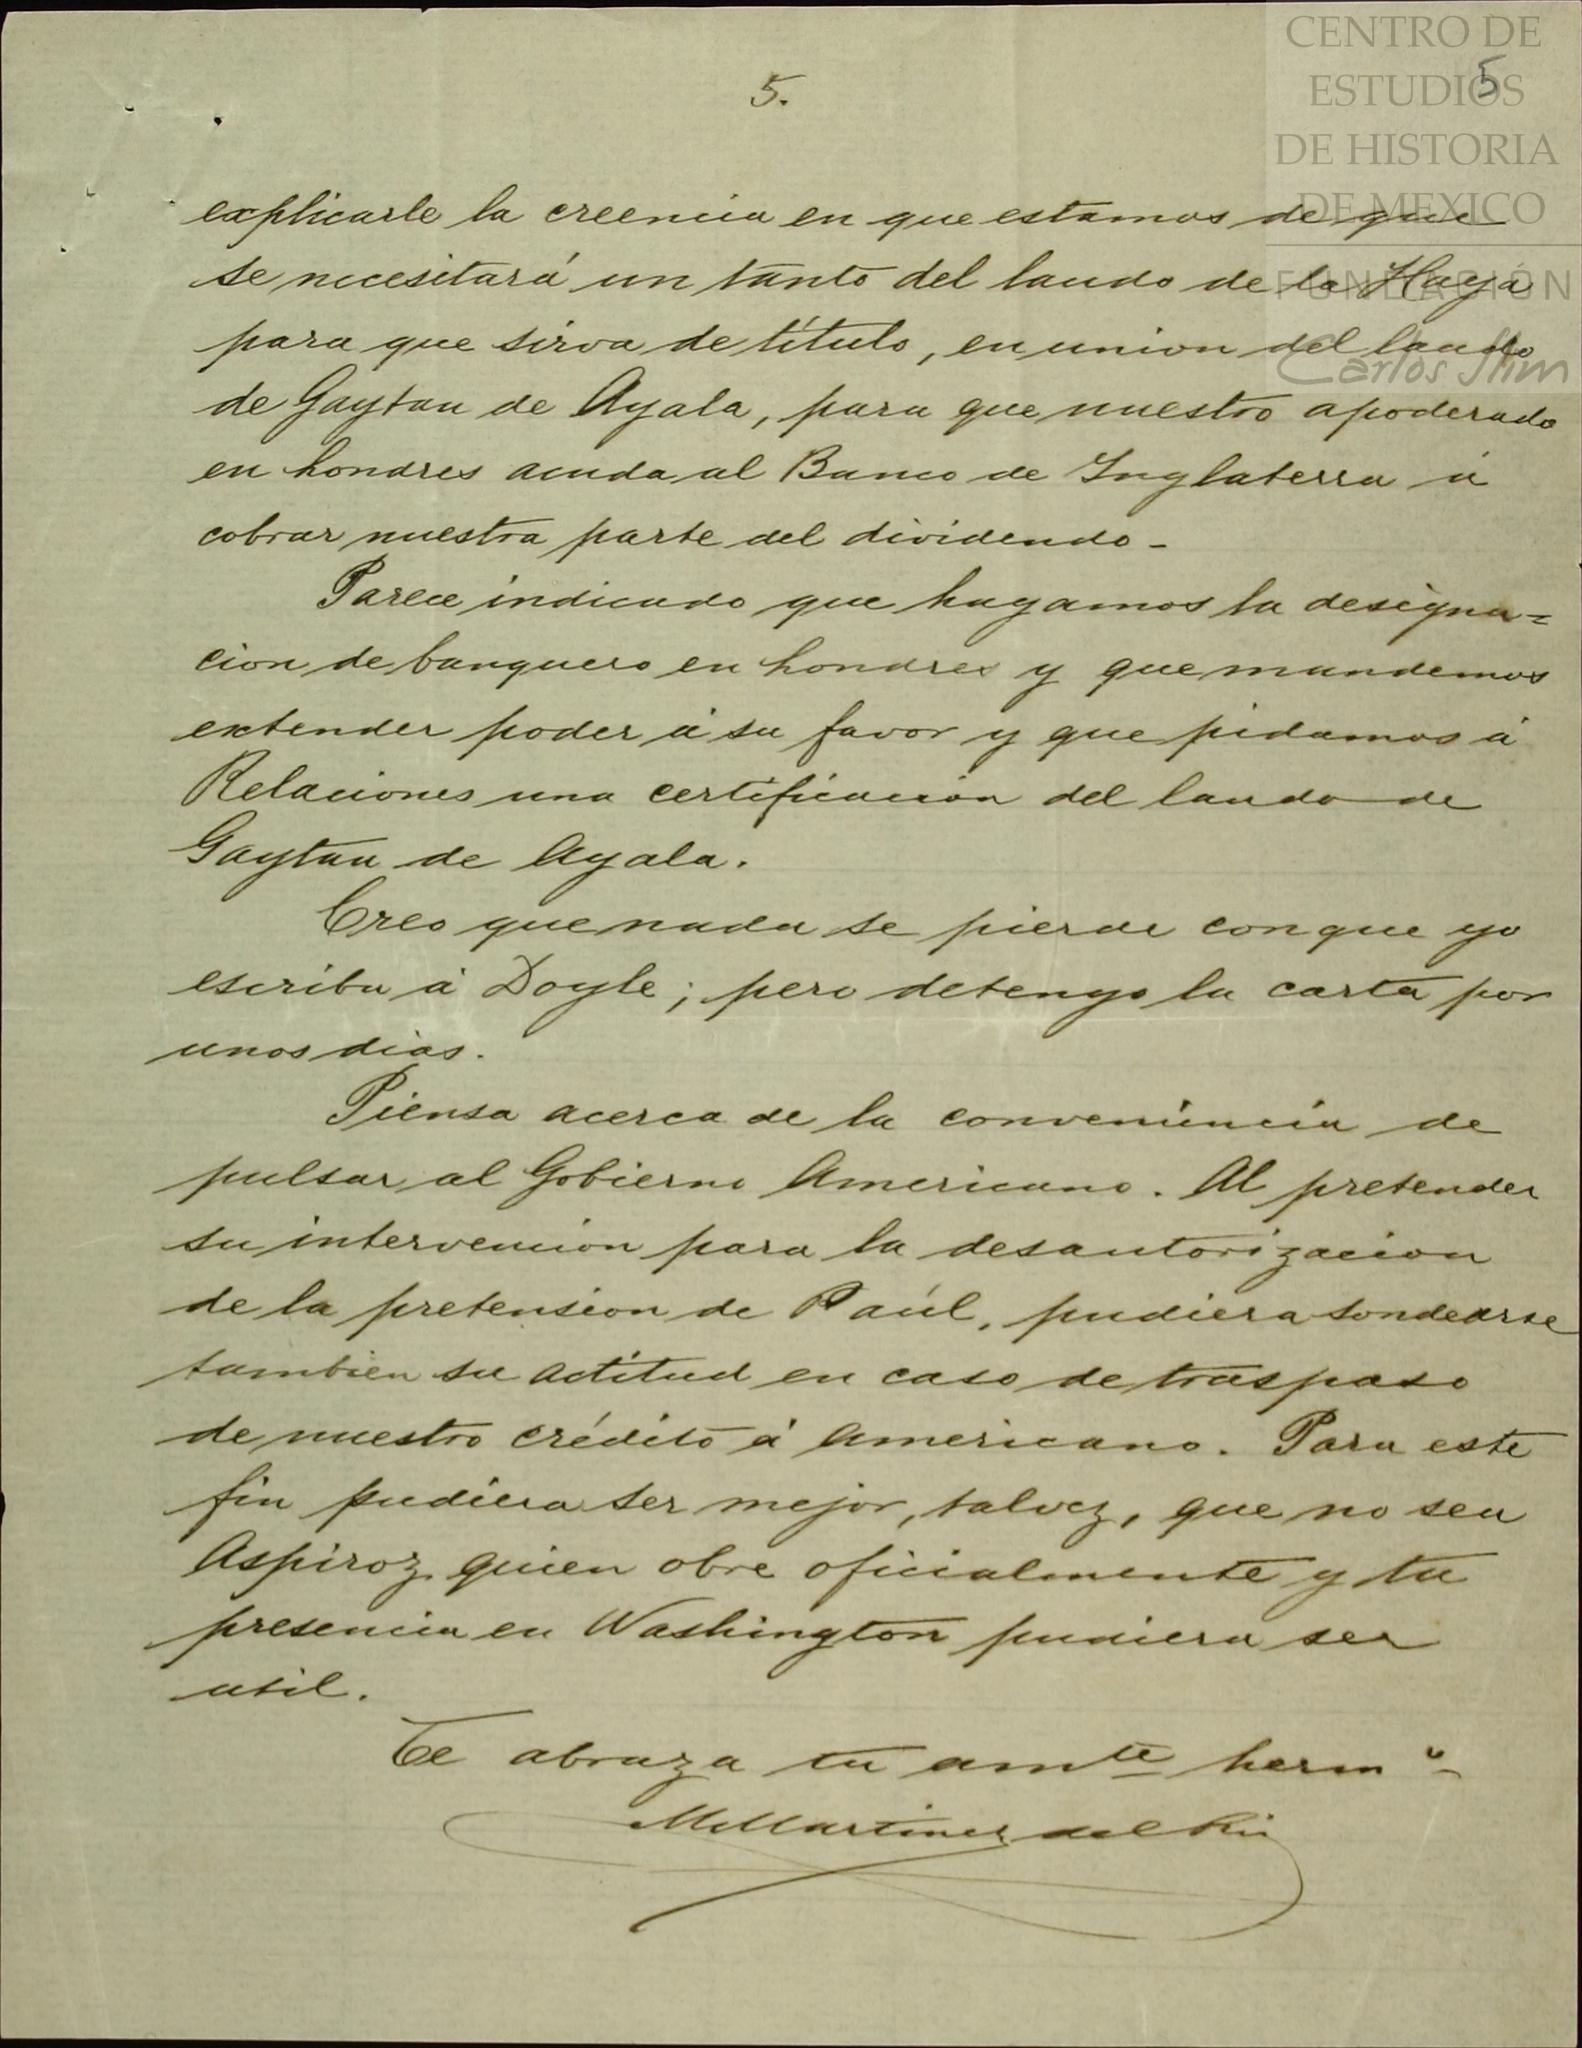 CENTRO DE
ESTUDIOS
DE HISTORIA
DE MEXICO
FUNDACIÓN
Carlos Slim
5
5.
explicarle la creencia en que estamos de que
se necesitará un tanto del laudo de la Haya
para que sirva de título, en union del laudo
de Gaytan de Ayala, para que nuestro apoderado
en Londres acuda al Banco de Inglaterra á
cobrar nuestra parte del dividendo -
Parece indicado que hagamos la designa=
cion de banquero en Londres y que mandemos
extender poder á su favor y que pidamos á
Relaciones una certificacion del laudo de
Gaytan de Ayala.
Creo que nada se pierde con que yo
escriba á Doyle; pero detengo la carta por
unos dias.
Piensa acerca de la conveniencia de
pulsar al Gobierno Americano. Al pretender
su intervencion para la desautorizacion
de la pretension de Raúl, pudiera sondearse
tambien su actitud en caso de traspaso
de nuestro crédito á americano. Para este
fin pudiera ser mejor, talvez, que no sea
Aspiroz quien obre oficialmente y tu
presencia en Washington pudiera ser
util.
Te abraza tu amte hermo
M Martinez del Rio